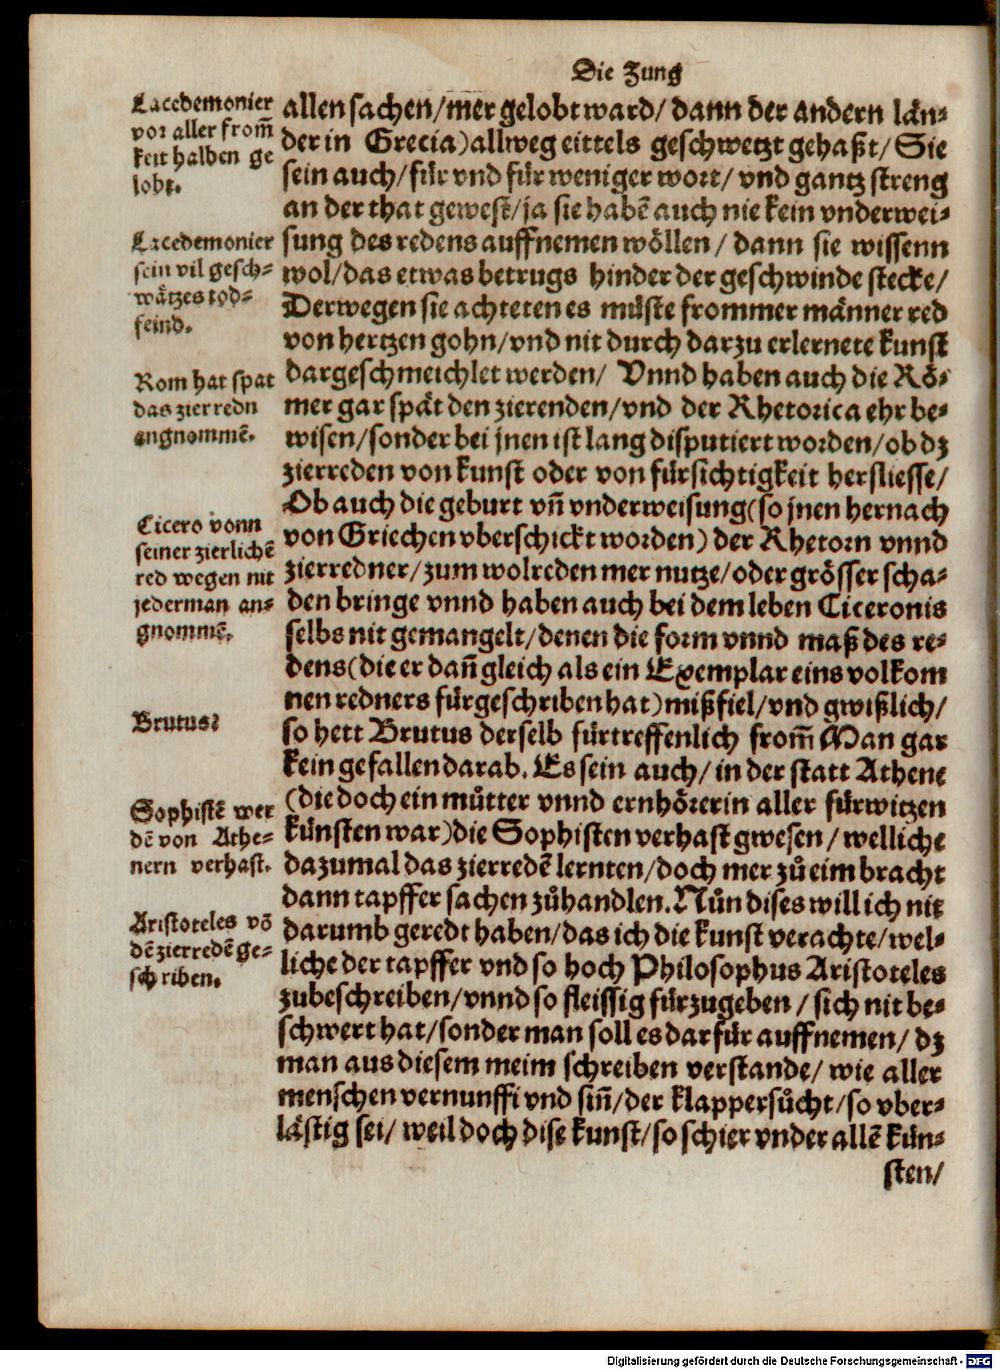 Die Zung
Lacedemonier
vor aller from̄
keit halben ge
lobt.
Lacedemonier
sein vil gesch⸗
wätzes tod⸗
feind.
Rom hat spat
das zierredn
angnommē.
Cicero vonn
seiner zierlichē
red wegen nit
jederman an⸗
gnommē.
Brutus?
Sophistē wer
dē von Athe⸗
nern verhast.
Aristoteles vō
dē zierredē ge⸗
schriben.
allen sachen/mer gelobt ward/ dann der andern län⸗
der in Grecia)allweg eittels geschwetzt gehaßt/ Sie
sein auch/für vnd für weniger wort/ vnd gantz streng
an der that gewest/ja sie habē auch nie kein vnderwei⸗
sung des redens auffnemen wöllen/ dann sie wissenn
wol/das etwas betrugs hinder der geschwinde stecke/
Derwegen sie achteten es müste frommer männer red
von hertzen gohn/vnd nit durch darzu erlernete kunst
dargeschmeichlet werden/ Vnnd haben auch die Rö⸗
mer gar spät den zierenden/vnd der Rhetorica ehr be⸗
wisen/sonder bei jnen ist lang disputiert worden/ob dz
zierreden von kunst oder von fürsichtigkeit herfliesse/
Ob auch die geburt vn̄ vnderweisung(so jnen hernach
von Griechen vberschickt worden) der Rhetorn vnnd
zierredner/zum wolreden mer nutze/oder grösser scha⸗
den bringe vnnd haben auch bei dem leben Ciceronis
selbs nit gemangelt/denen die form vnnd maß des re⸗
dens(die er dan̄ gleich als ein Exemplar eins volkom
nen redners fürgeschriben hat)mißfiel/vnd gwißlich/
so hett Brutus derselb fürtreffenlich from̄ Man gar
kein gefallen darab. Es sein auch/ in der statt Athene
(die doch ein mütter vnnd ernhörerin aller fürwitzen
künsten war)die Sophisten verhast gwesen/ welliche
dazumal das zierredē lernten/doch mer zů eim bracht
dann tapffer sachen zůhandlen. Nůn dises will ich nit
darumb geredt haben/das ich die kunst verachte/wel⸗
liche der tapffer vnd so hoch Philosophus Aristoteles
zubeschreiben/vnnd so fleissig fürzugeben/ sich nit be⸗
schwert hat/sonder man soll es darfür auffnemen/ dz
man aus diesem meim schreiben verstande/ wie aller
menschen vernunfft vnd sin̄/der klappersůcht/so vber⸗
lästig sei/ weil doch dise kunst/so schier vnder allē kün⸗
sten/
Digitalisierung gefördert durch die Deutsche Forschungsgemeinschaft - DFG